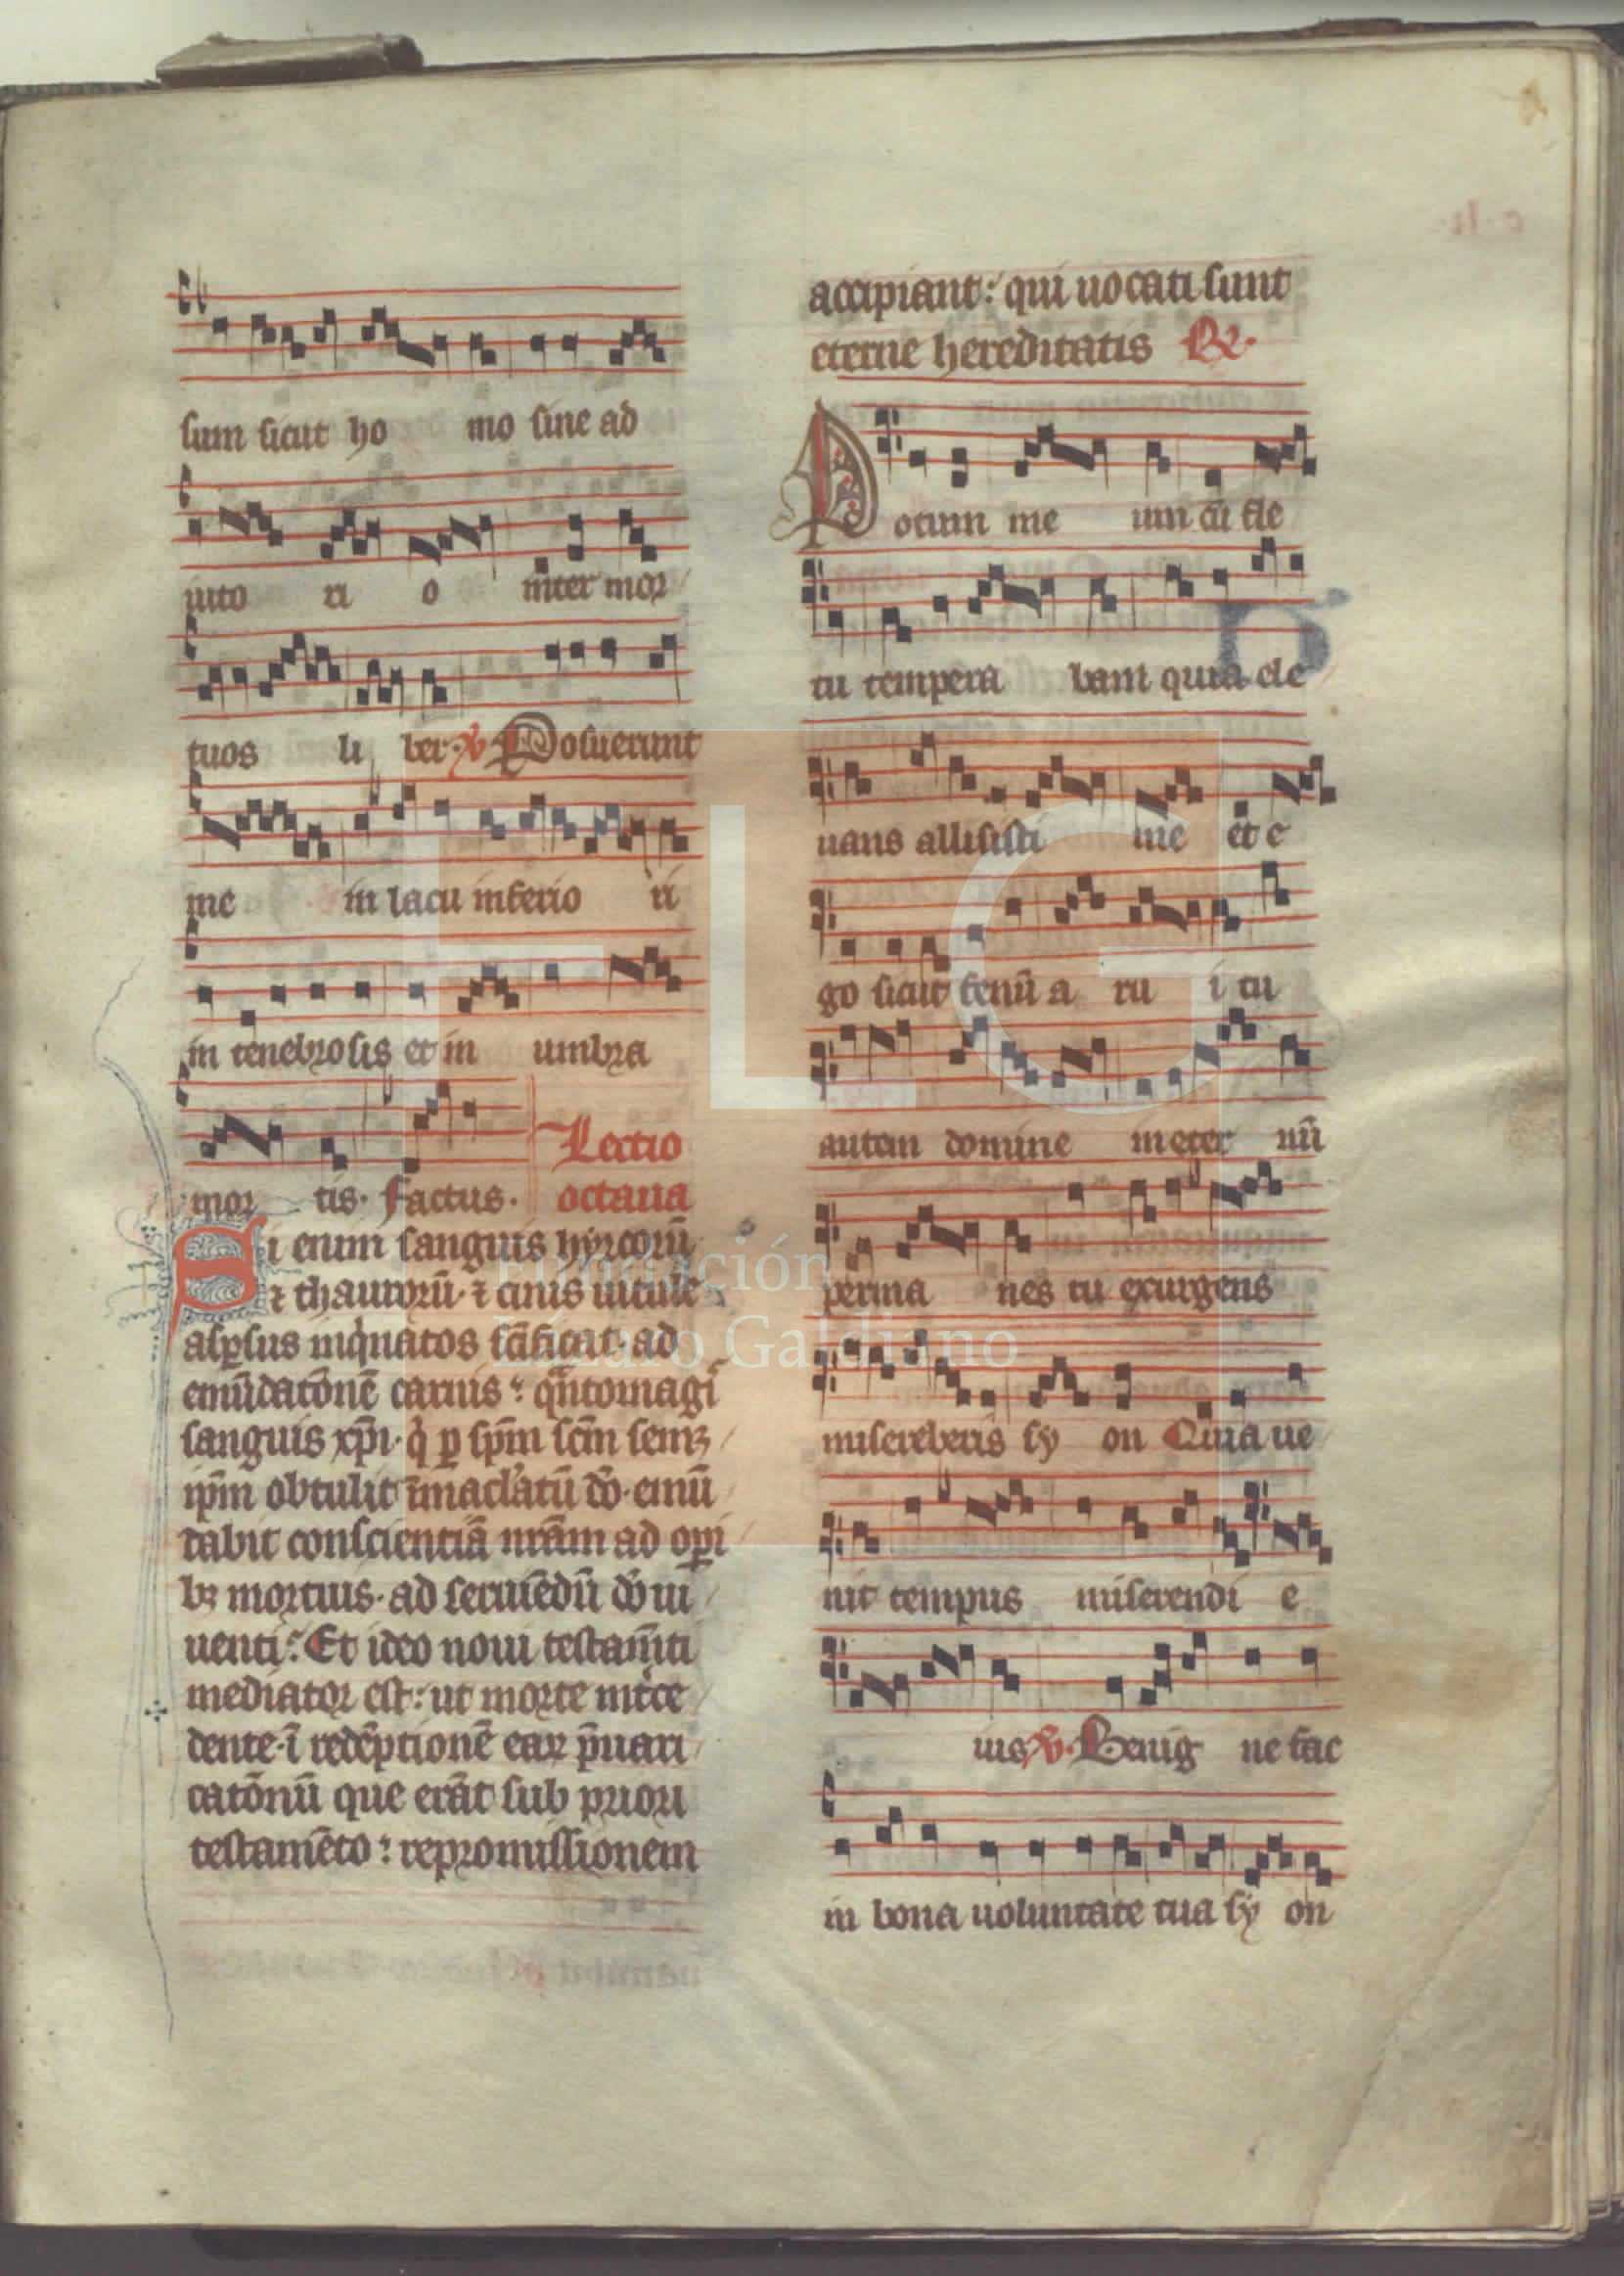 sum sicut ho mo sine ad
iuto ri o inter mor
tuos li ber. ꝟ Posuerunt
me in lacu inferio ri
in tenebrosis et in umbra
mor tis. Factus. Lectio
octaua
Si enim sanguis hyrcorū
⁊ thaurorū. ⁊ cinis uitule
asꝑsus inq̇natos sc̄ificat. ad
emūdatōnē carnis: qn̄to magꝭ
sanguis xp̄i. q̇ ꝑ sp̄m sc̄m semꝫ
ip̄m obtulit īmacl̓atū dō. emū
dabit conscientiā nr̄am ad oꝑi
bꝫ mortuis. ad seruiēdū dō ui
uenti: Et ideo noui testam̄ti
mediator est: ut morte int̓ce
dente. ī redēptionē eaꝝ p̄uari
catōnū que erāt sub priori
testamēto: repromissionem
accipiant: qui uocati sunt
eterne hereditatis ℟.
Potum me um cū fle
tu tempera bam quia ele
uans allisisti me et e
go sicut fenū a ru i tu
autem domine in eter nū
perma nes tu exurgens
misereberis sy on Quia ue
nit tempus miserendi e
ius ꝟ. Benig ne fac
in bona uoluntate tua sy on
FLG
Fundación
Lázaro Galdiano